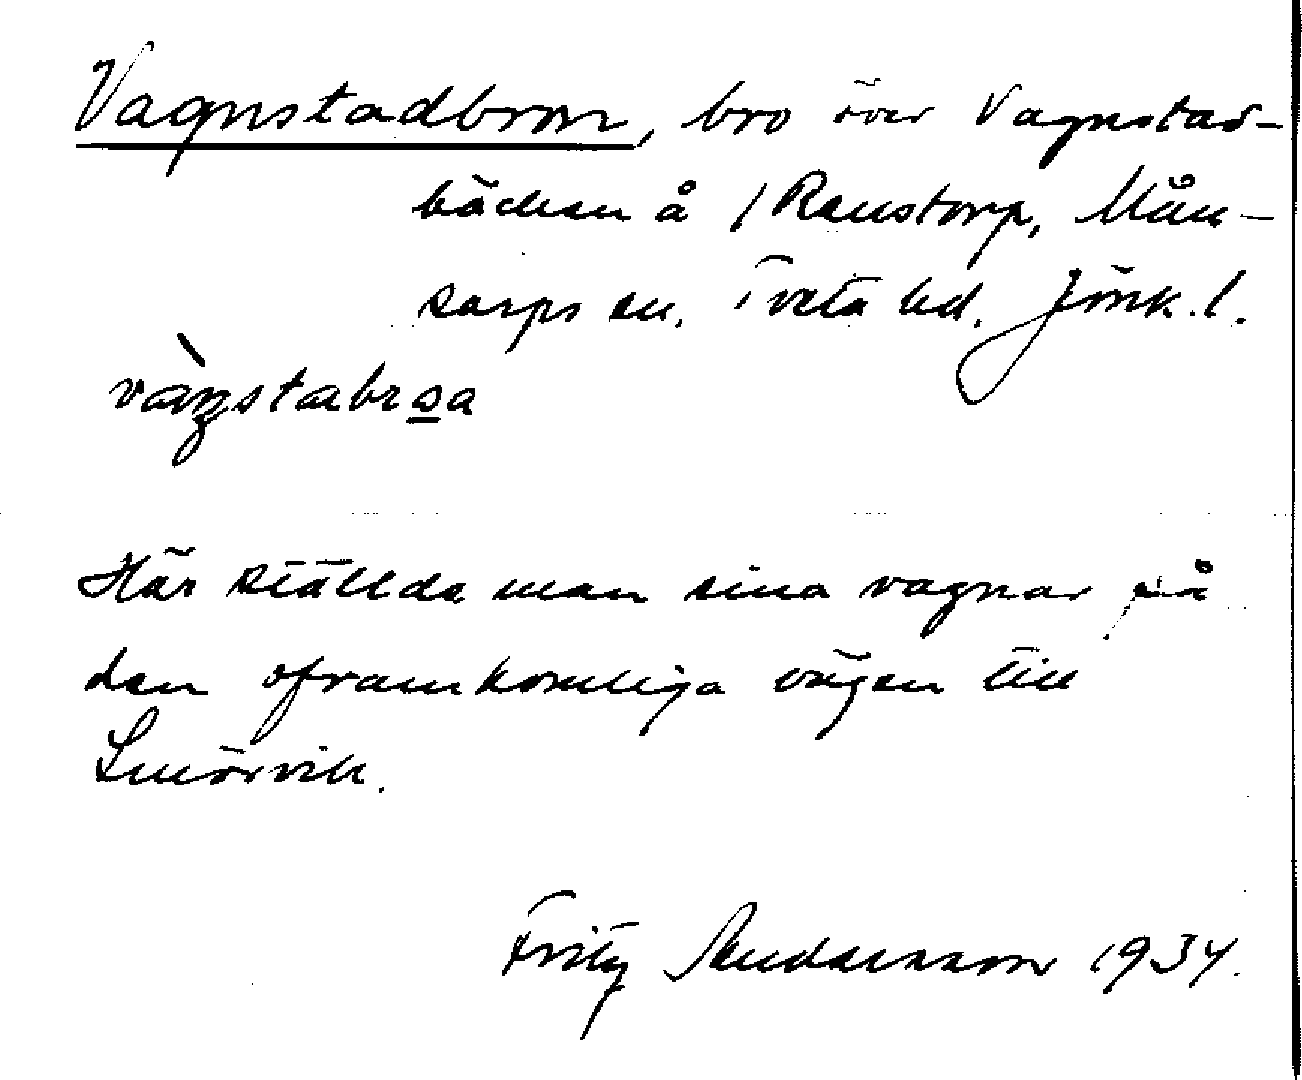 Vagnstadbron, bro över Vagnstad-
bäcken å / Renstorp, Mån-
sarps sn. Tveta hd. Jönk. l.
vàŋstabroa
Här ställde man sina vagnar på
den oframkomliga vägen till
Smörvik.
Fritz Andersson 1934.